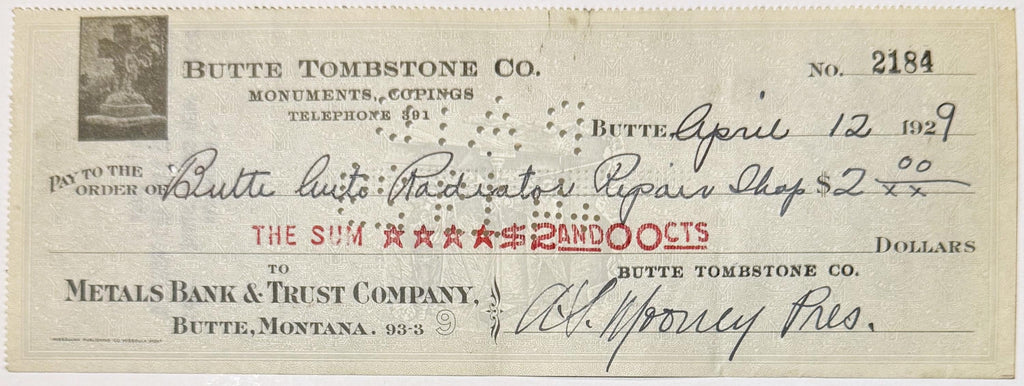 BUTTE TOMBSTONE CO.
MONUMENTS, COPINGS
TELEPHONE 391
NO. 2184
BUTTE, April 12 1929
PAY TO THE ORDER OF Butte Auto Radiator Repair Shop $2 00/xx
THE SUM ★★★★$2AND00CTS DOLLARS
TO
METALS BANK & TRUST COMPANY,
BUTTE, MONTANA. 93-3 9
BUTTE TOMBSTONE CO.
A.S. Mooney Pres.
MISSOULIAN PUBLISHING CO MISSOULA MONT